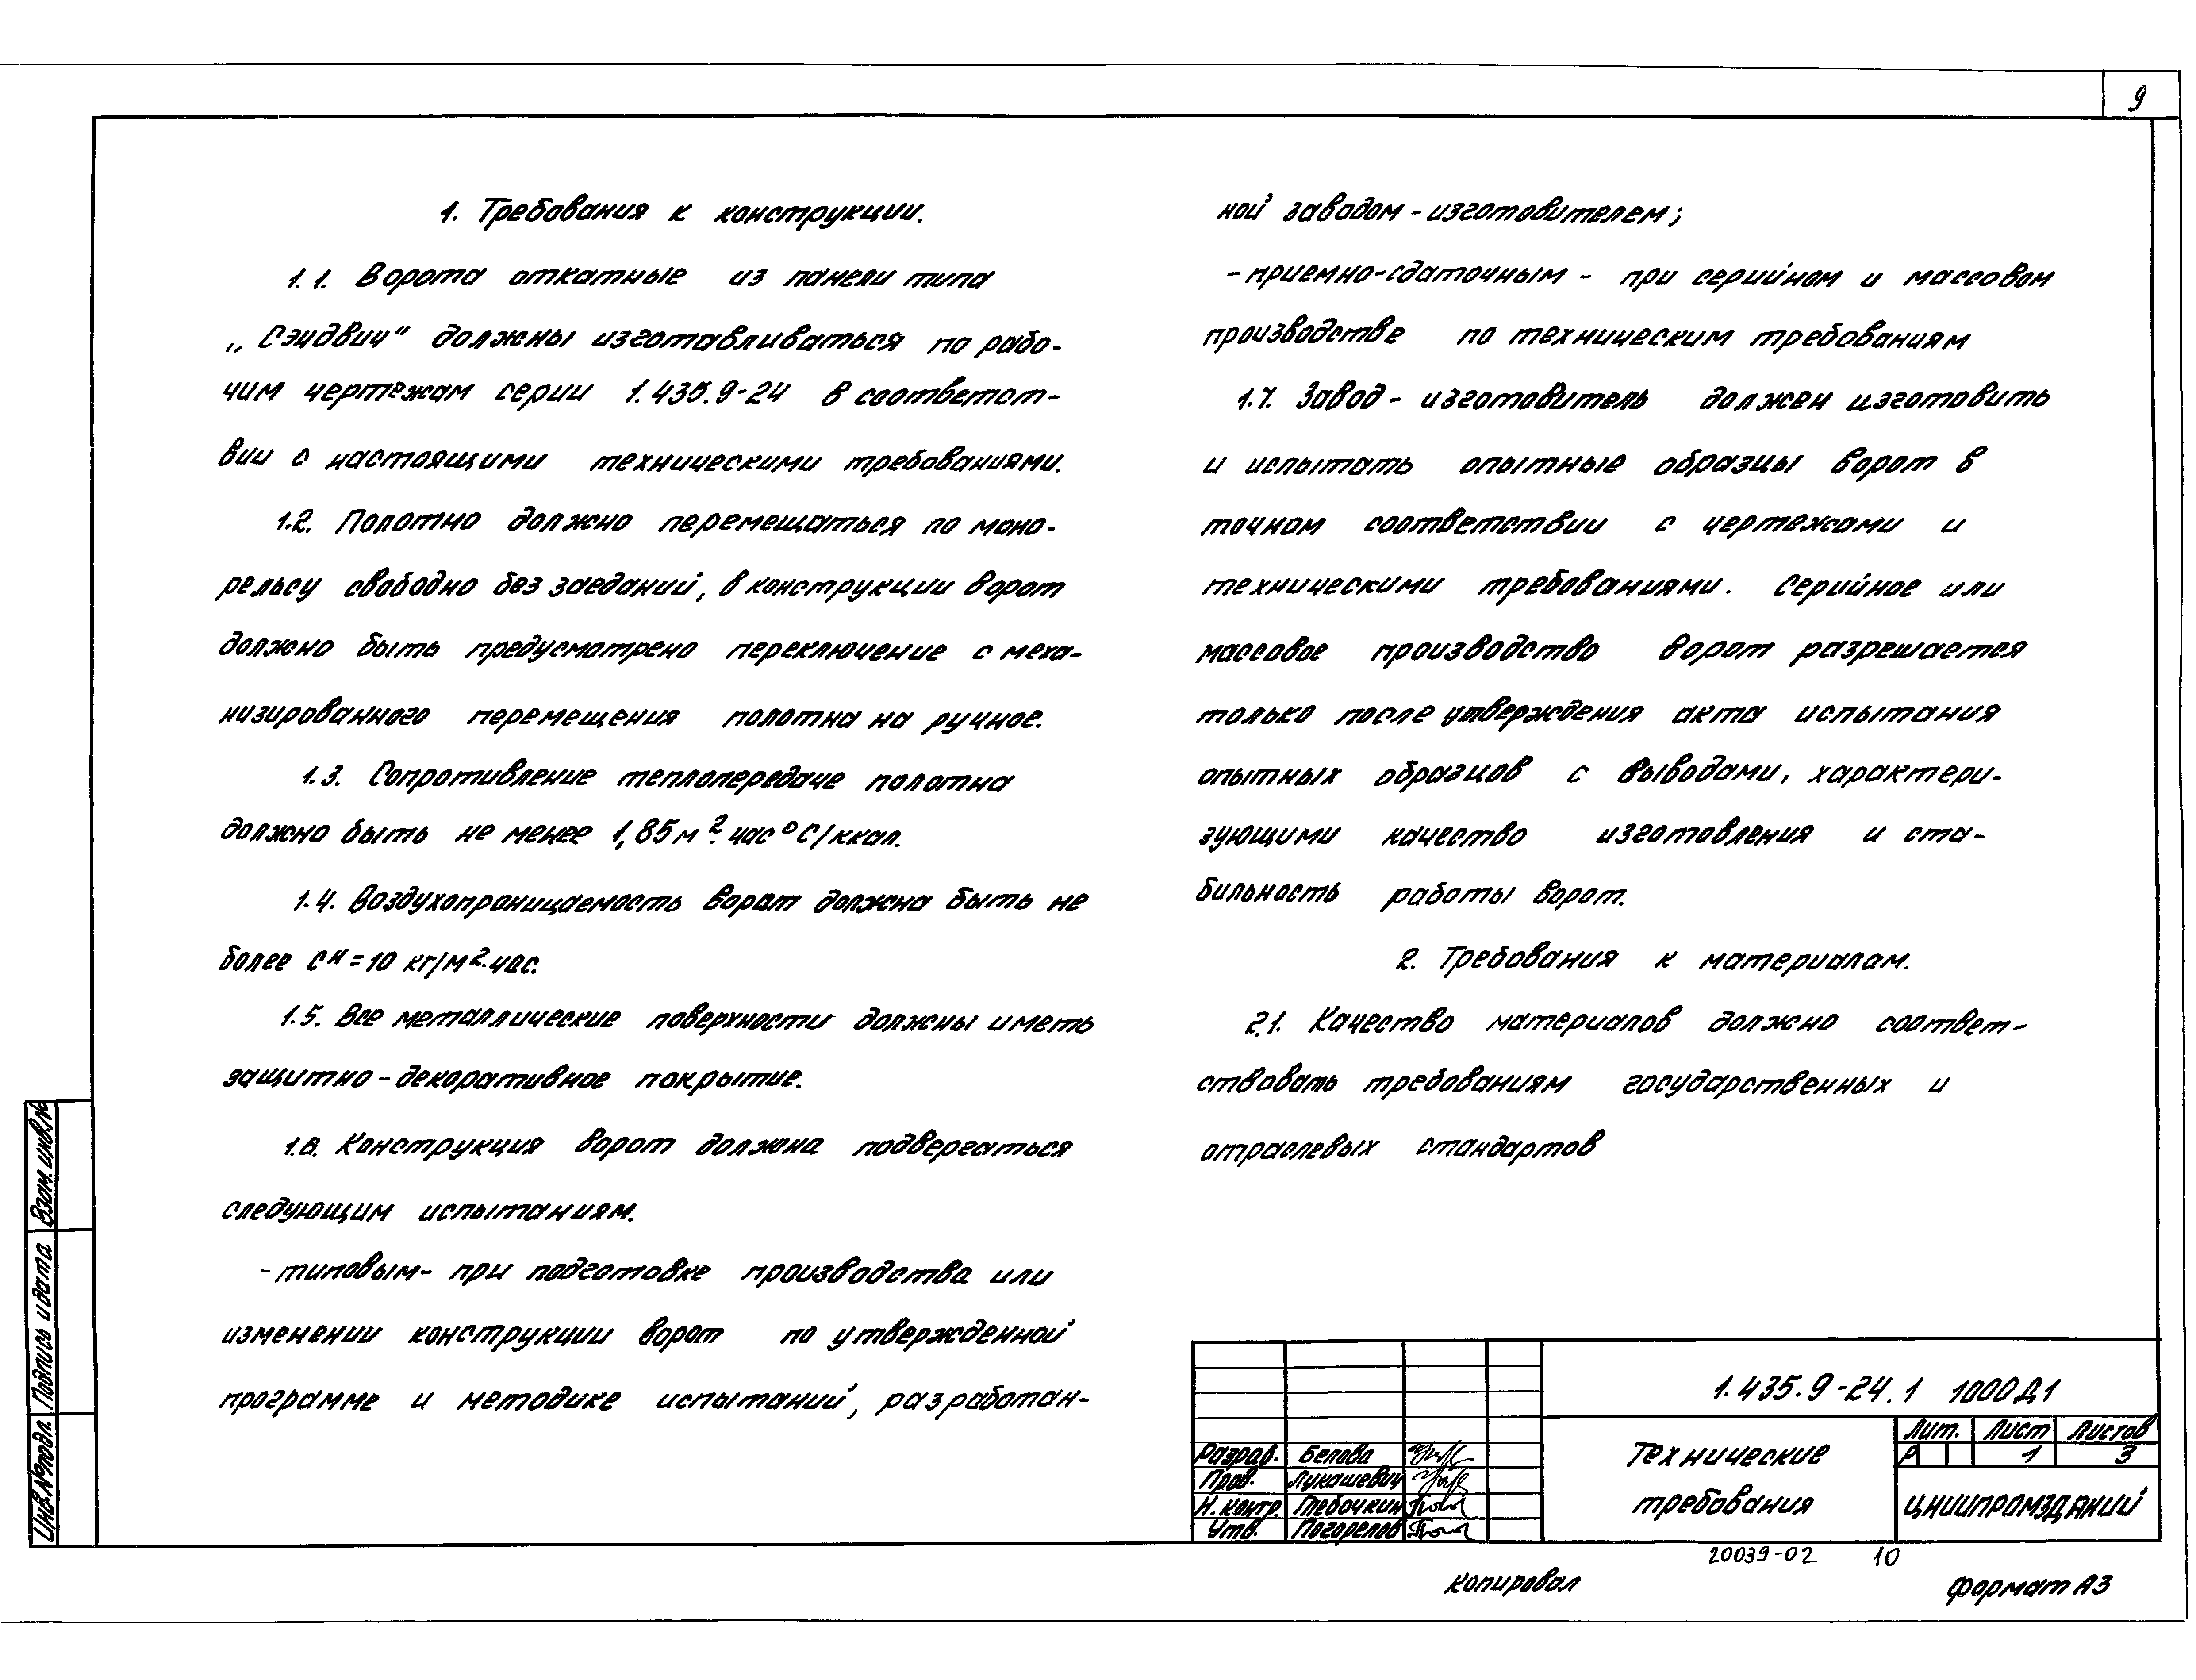 9
1. Требования к конструкции.
1.1. Ворота откатные из панели типа
„Сэндвич" должны изготавливаться по рабо-
чим чертежам серии 1.435.9-24 в соответст-
вии с настоящими техническими требованиями.
1.2. Полотно должно перемещаться по моно-
рельсу свободно без заеданий, в конструкции ворот
должно быть предусмотрено переключение с меха-
низированного перемещения полотна на ручное.
1.3. Сопротивление теплопередаче полотна
должно быть не менее 1,85 м².час °С/ккал.
1.4. Воздухопроницаемость ворот должна быть не
более Cн=10 кг/м².час.
1.5. Все металлические поверхности должны иметь
защитно-декоративное покрытие.
1.6. Конструкция ворот должна подвергаться
следующим испытаниям.
- типовым - при подготовке производства или
изменении конструкции ворот по утвержденной
программе и методике испытаний, разработан-
ной заводом-изготовителем;
- приемно-сдаточным - при серийном и массовом
производстве по техническим требованиям
1.7. Завод-изготовитель должен изготовить
и испытать опытные образцы ворот в
точном соответствии с чертежами и
техническими требованиями. Серийное или
массовое производство ворот разрешается
только после утверждения акта испытания
опытных образцов с выводами, характери-
зующими качество изготовления и ста-
бильность работы ворот.
2. Требования к материалам.
2.1. Качество материалов должно соответ-
ствовать требованиям государственных и
отраслевых стандартов
Взам. инв.№
Подпись и дата
Инв.№ подл.
1.435.9-24.1 1000Д1
Разраб. Белова
Пров. Лукашевич
Н.контр. Тебочкин
Утв. Погорелов
Технические
требования
Лит. Лист Листов
Р 1 3
ЦНИИПРОМЗДАНИЙ
20039-02 10
Копировал
Формат А3